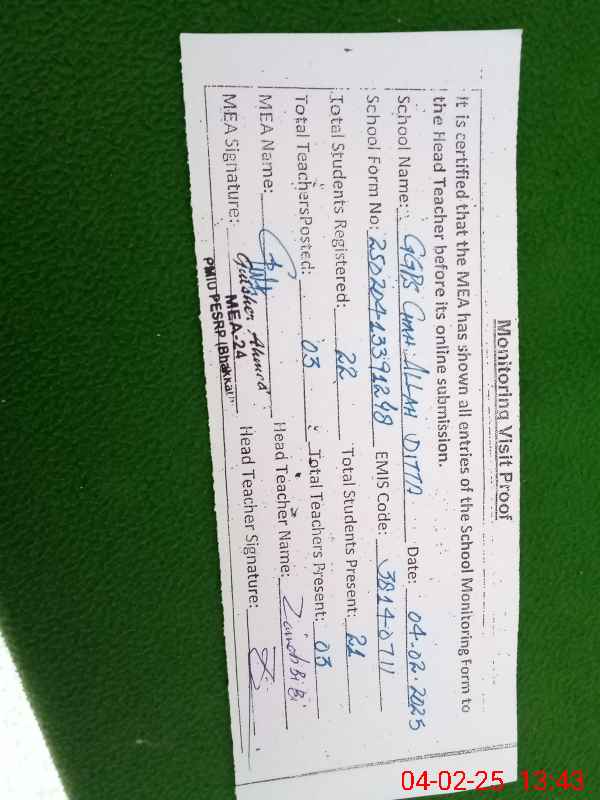 Monitoring Visit Proof
It is certified that the MEA has shown all entries of the School Monitoring Form to
the Head Teacher before its online submission.
School Name: GGPS Chah ALLAH DITTA Date: 04.02.2025
School Form No: EMIS Code: 3814-0711
Total Students Registered: 22 Total Students Present: 21
Total Teachers Posted: 03 Total Teachers Present: 03
MEA Name: Head Teacher Name: Bibi
MEA Signature: Head Teacher Signature:
Gulsher Ahmed
MEA-24
PMIU PESRP (Bhakkar)
04-02-25 13:43